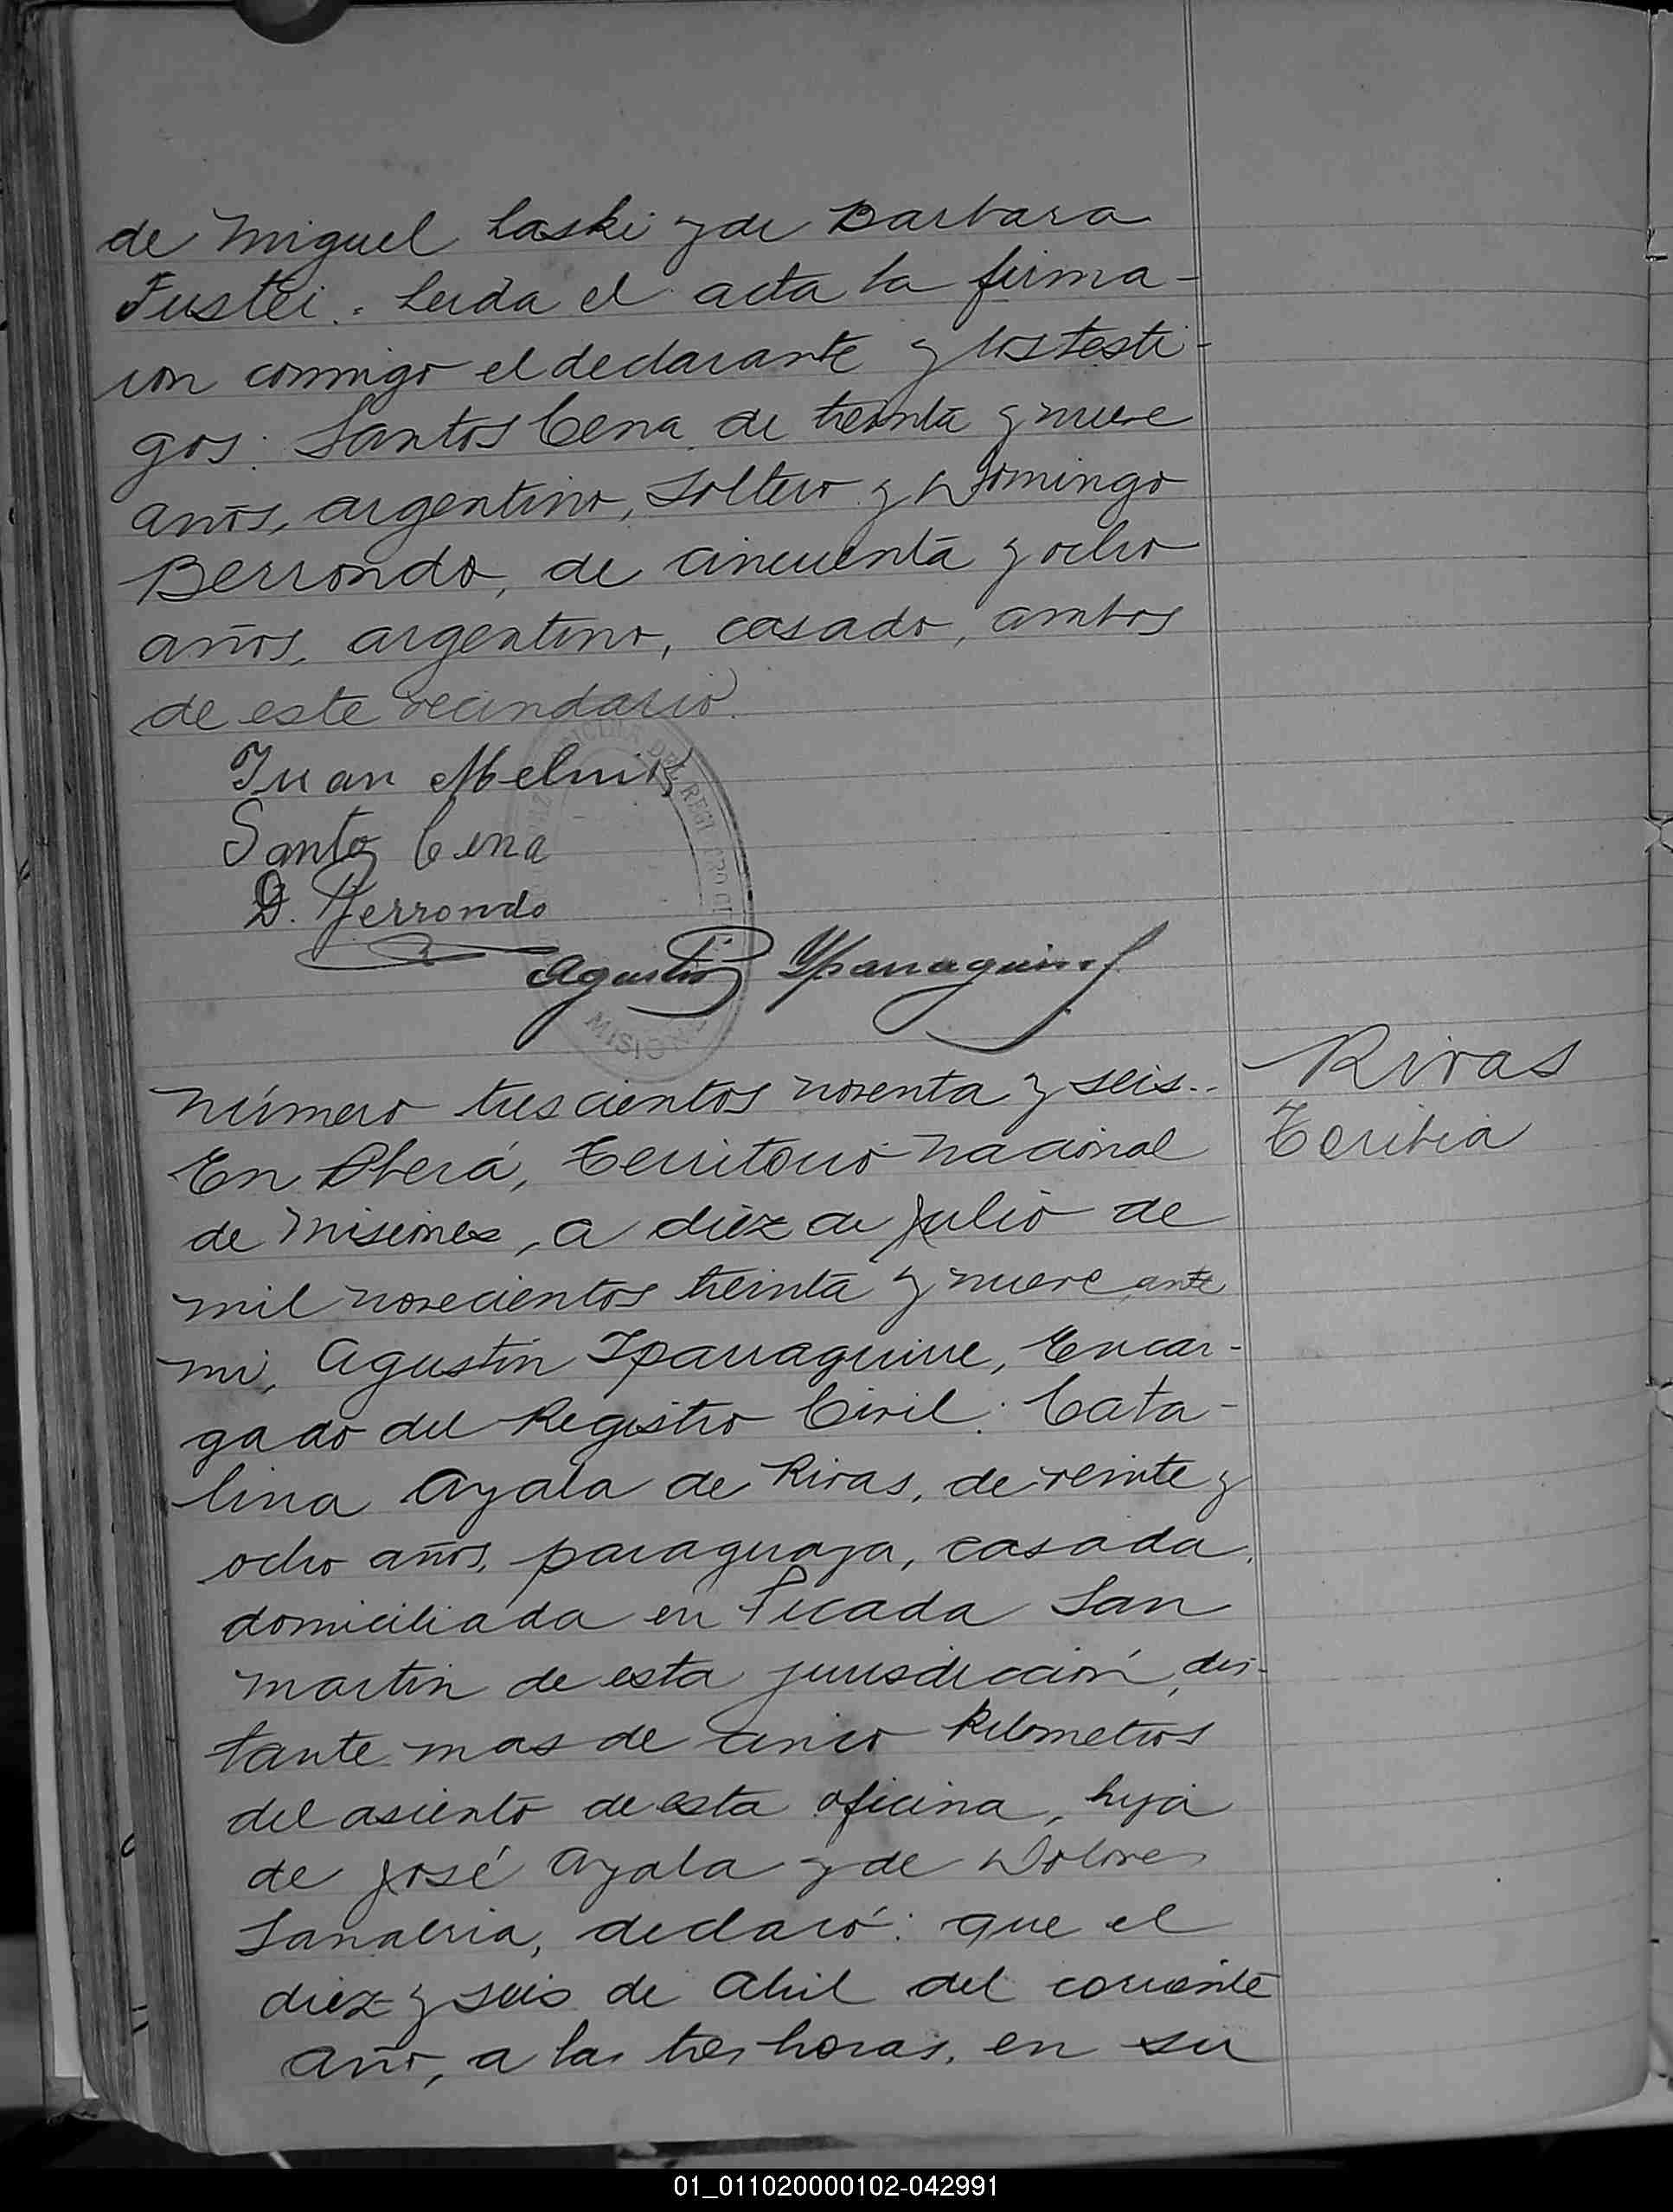 de Miguel Laski y de Barbara
Fustei. Leida el acta la firma-
ron conmigo el declarante y los testi-
gos: Santos Cena de treinta y nueve
años, argentino, soltero y Domingo
Berrondo, de cincuenta y ocho
años, argentino, casado, ambos
de este vecindario.
Juan Melnik
Santos Cena
D. Berrondo
Agustin Yparraguirre
MISIONES
Número trescientos noventa y seis..
Rivas
Toribia
En Oberá, Territorio Nacional
de Misiones, a diez de Julio de
mil novecientos treinta y nueve ante
mi, Agustín Iparraguirre, Encar-
gado del Registro Civil: Cata-
lina Ayala de Rivas, de veinte y
ocho años, paraguaya, casada,
domiciliada en Picada San
Martin de esta jurisdicción, dis-
tante mas de cinco kilometros
del asiento de esta oficina, hija
de José Ayala y de Dolores
Sanabria, declaró: que el
diez y seis de Abril del corriente
año, a las tres horas, en su
01_011020000102-042991